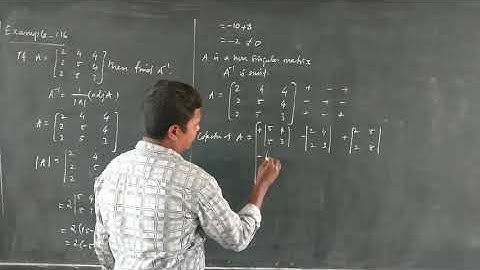 Example-1.16
If A = [2 4 4
2 5 4
2 5 3] then find A⁻¹
A⁻¹ = 1/|A| (adj A)
A = [2 4 4
2 5 4
2 5 3]
|A| = |2 4
2 5
2 5
= 2 |5 4
5 3
= 2(15-
= 2(-5
= -10+8
= -2 ≠ 0
A is a non singular matrix
A⁻¹ is exist.
A = [2 4 4
2 5 4
2 5 3] + - +
- + -
+ - +
Cofactor of A = [+ |5 4
5 3| - |2 4
2 3| + |2 5
2 5|